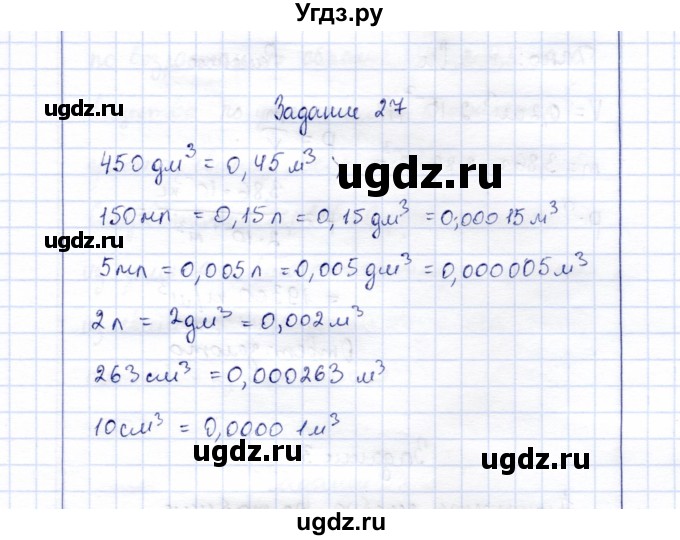 Угдз.ру
ugdz.ru
ugdz.ru
Задание 27
450 дм³ = 0,45 м³ ;
ugdz.ru
150 мл = 0,15 л = 0,15 дм³ = 0,00015 м³
ugdz.ru
5 мл = 0,005 л = 0,005 дм³ = 0,000005 м³
2 л = 2 дм³ = 0,002 м³
263 см³ = 0,000263 м³
10 см³ = 0,00001 м³
ugdz.ru
ugdz.ru
ugdz.ru